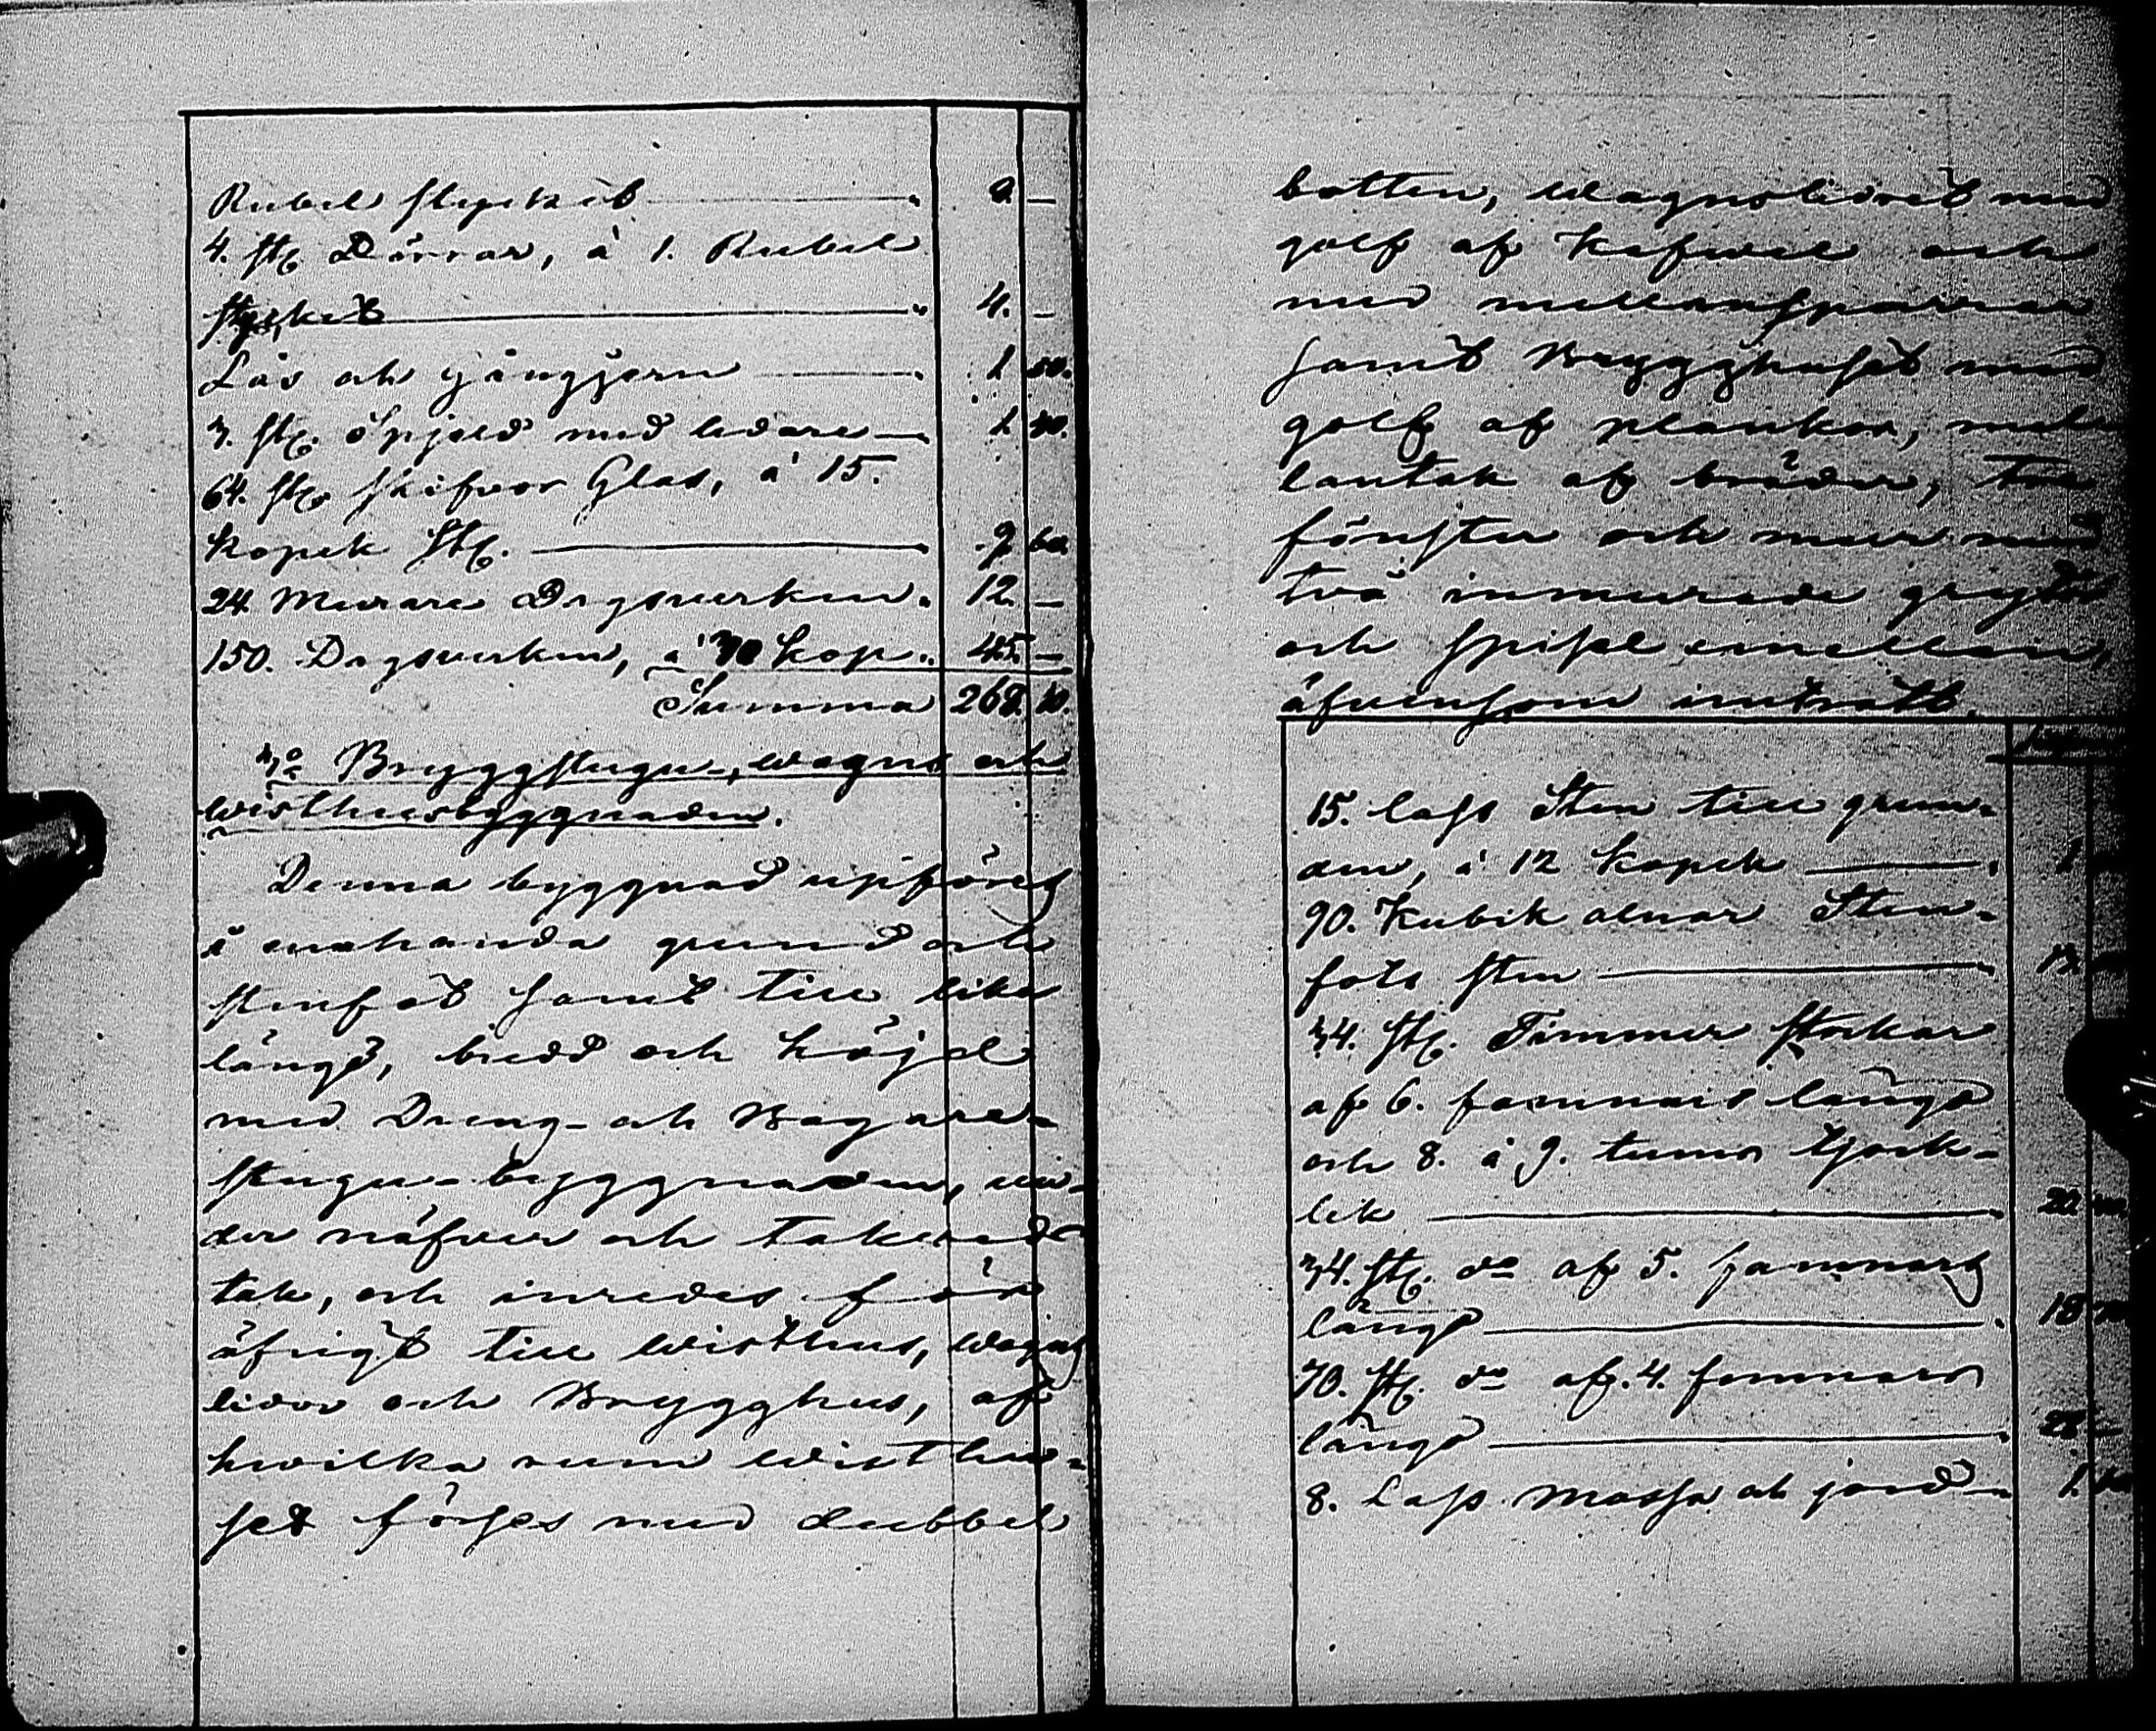 Rubel stycket 8. —
4. stg Dörrar, à 1. Rubel
stycket 4. —
Lås och gångjern 1 50.
3. stg. spjeld med ledare 1 30.
64. stg skifvor Glas, à 15.
kopek stg. 9 60
24 Murare Dagsverken. 12. —
150. Dagsverken, à 30 kop. 45. —
Summa 268. 10.
3o Bryggstugu-, wagns och
wisthusbyggnaden.
Denna byggnad uppföres
å enahanda grund och
stenfot samt till lika
längd, bredd och höjd
med Dreng- och Bagare-
stugu-byggnaden, un-
der näfver och takved
tak, och inredes för
öfrigt till wisthus, wagns
lider och Brygghus, af
hvilka rum wisthu-
set förses med dubbel
botten, wagnslidret med
golf af kafvel och
med mellansparrar
samt Brygghuset med
golf af plankor, mel
lantak af bräder, två
fönster och mur med
två inmurade grytor
och spisel emellan,
äfvensom inntratt.
15. lass Sten till grun-
den, à 12 kopek 1
90. Kubik alnar Sten-
fots sten 13
34. stg. Timmer stockar
af 6. famnars längd
och 8. à 9. tums tjock-
lek 22
34. stg. do af 5. famnars
längd 18
70. stg. do af 4. famnars
längd 28 —
8. Lass Mossa och jord 1.